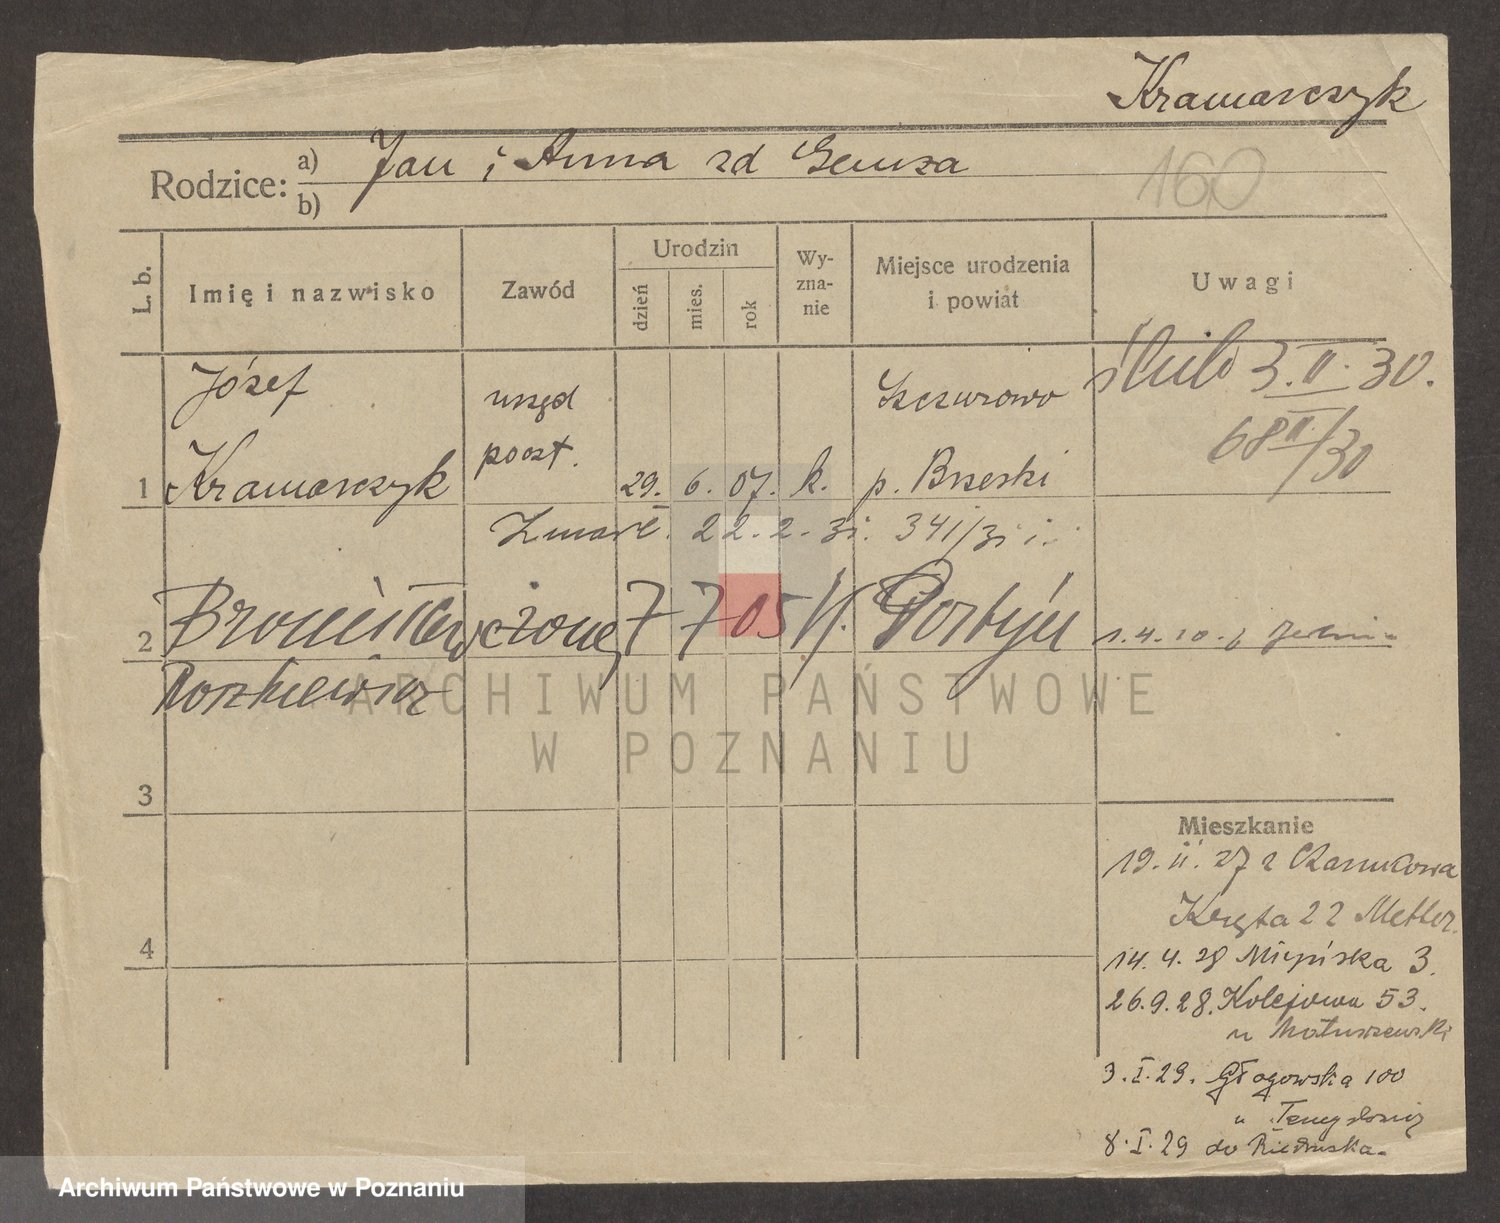 Kramarczyk
Rodzice: a) Jan i Anna zd Gensza
b)
160
L. b.
Imię i nazwisko
Zawód
Urodzin
dzień
mies.
rok
Wy-
zna-
nie
Miejsce urodzenia
i powiat
Uwagi
Józef
urzęd
Szczurowo
ślub 3.II.30.
poczt.
68 II/30
1 Kramarczyk
29. 6. 07. k. p. Brzeski
Zmarł. 22.2.31. 341/31
2 Bronisława żona 7 7 05 k. Gostyń
1.4.10.
Roszkiewicz
3
4
Mieszkanie
19.II.27 z Czarnkowa
Kręta 22 Metler.
14.4.28 Młyńska 3.
26.9.28. Kolejowa 53.
u Matuszewski
3.I.29. Głogowska 100
u
8.I.29 do Biedruska
ARCHIWUM PAŃSTWOWE
W POZNANIU
Archiwum Państwowe w Poznaniu